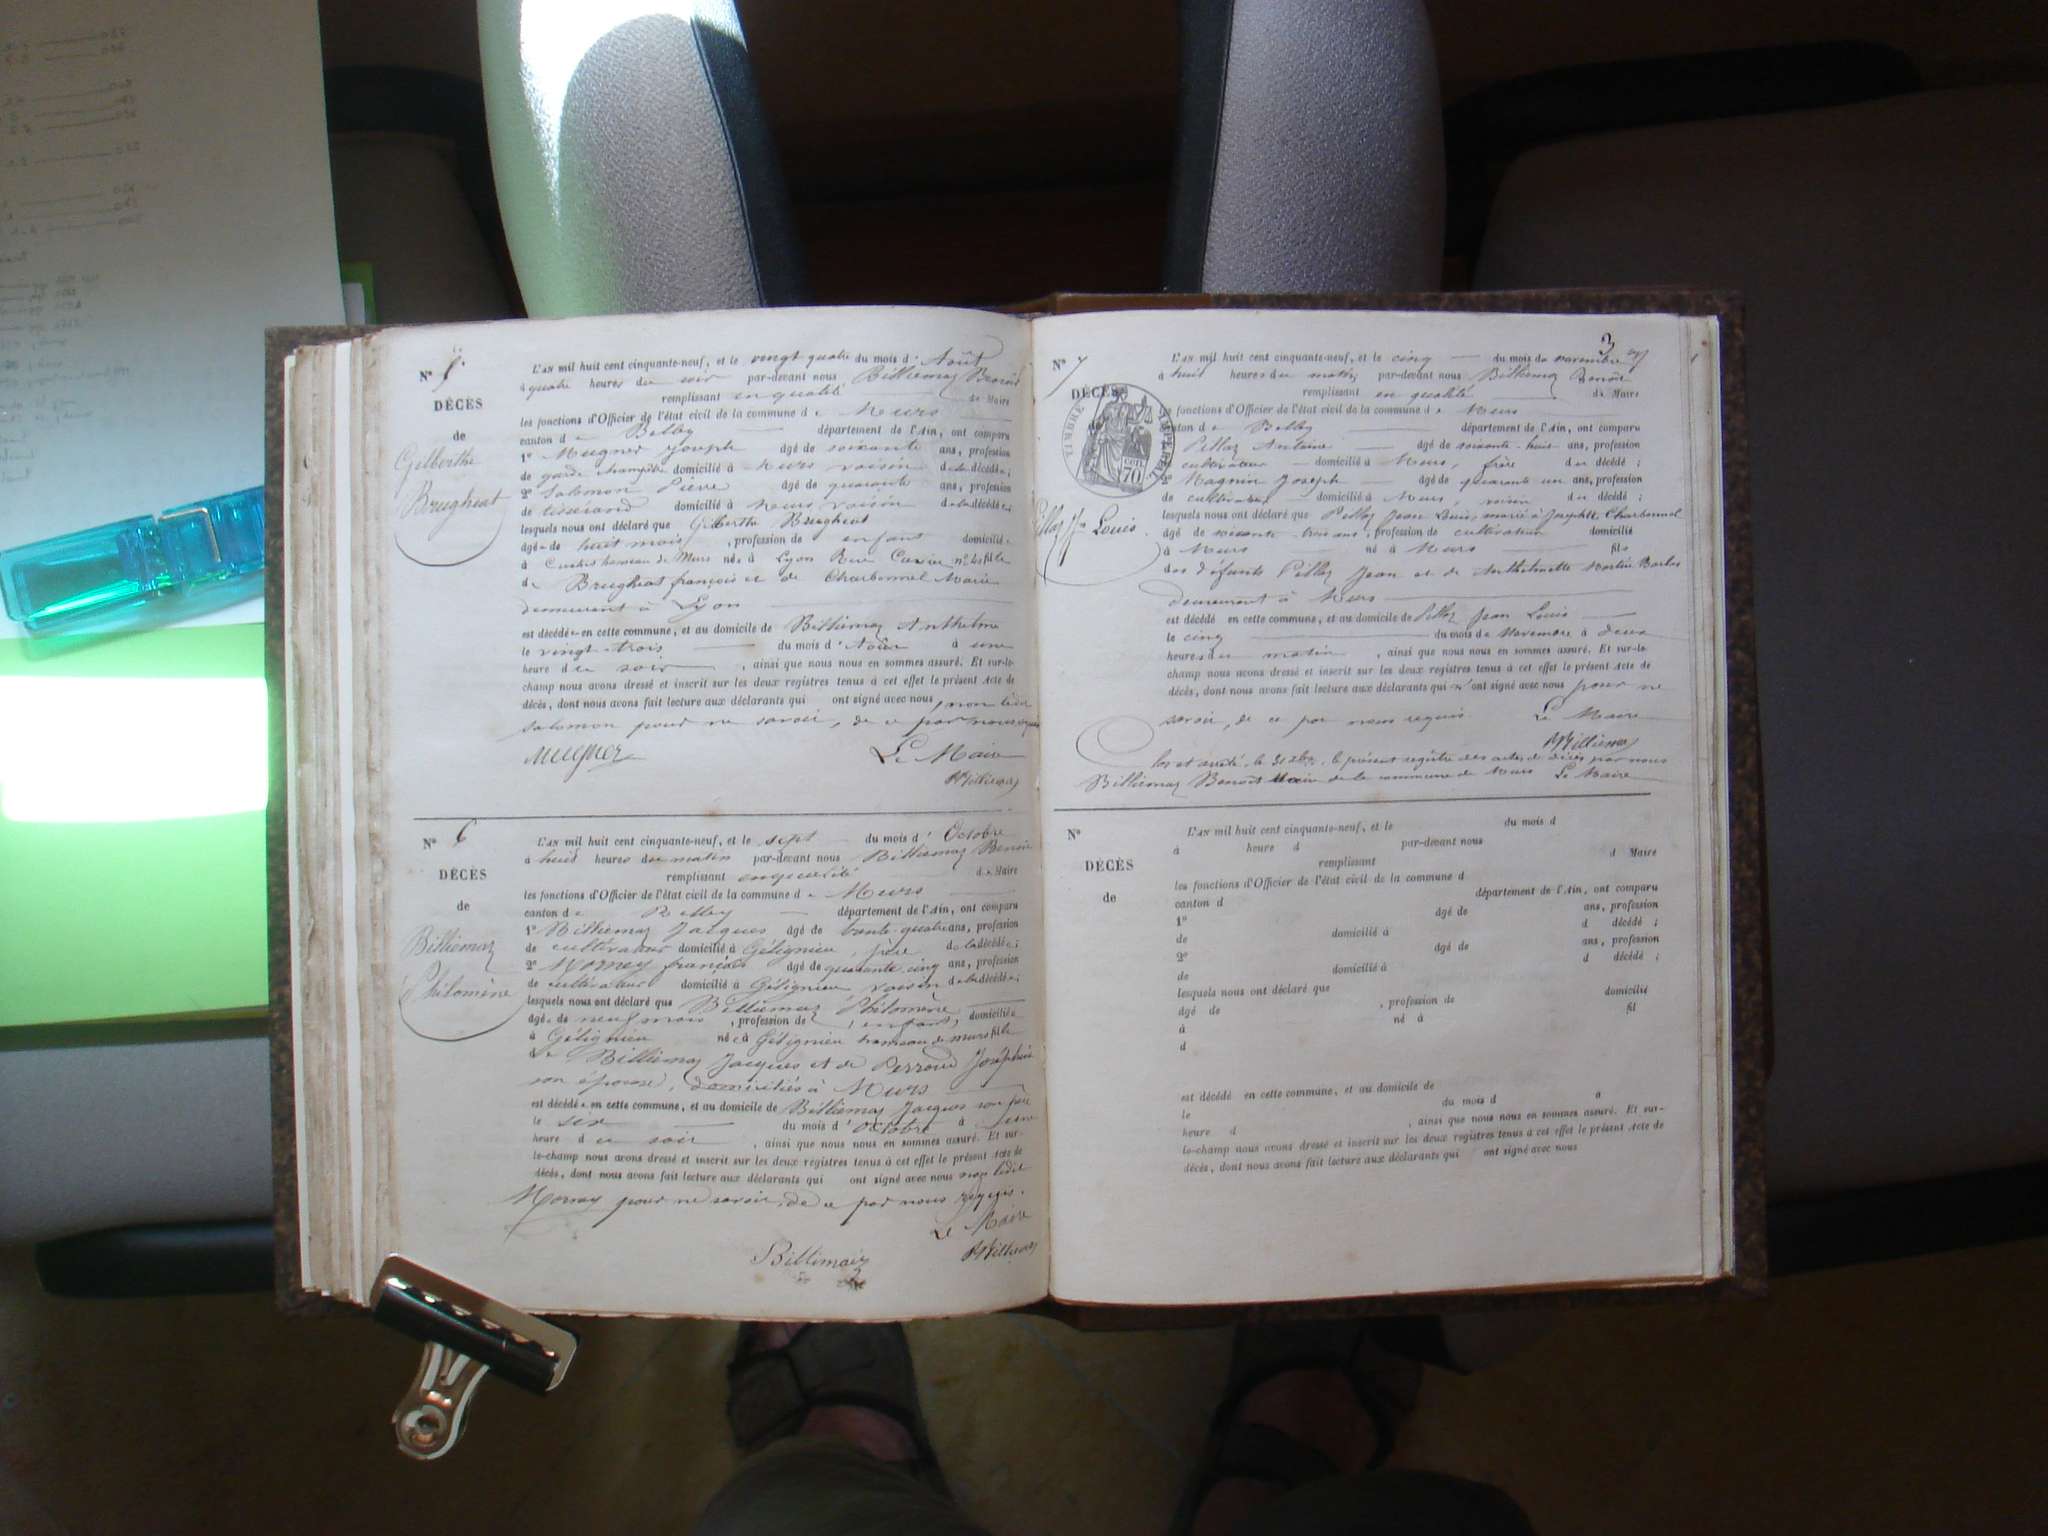 N° 5.
L'AN mil huit cent cinquante-neuf, et le vingt quatre du mois d'Août
à quatre heures du soir par-devant nous Billiemaz Benoît
remplissant en qualité de Maire
DÉCÈS
les fonctions d'Officier de l'état civil de la commune de Murs
de
canton de Belley département de l'Ain, ont comparu
Gilberthe
Brugheat
1° Mugner Joseph âgé de soixante ans, profession
de garde champêtre domicilié à Murs voisin de la décédée;
2° Salomon Pierre âgé de quarante ans, profession
de tisserand domicilié à Murs voisin de la décédée;
lesquels nous ont déclaré que Gilberthe Brugheat
âgée de huit mois, profession de enfant domiciliée
à hameau de Murs née à Lyon Rue fille
de Brugheat françois et de Charbonnel Marie
demeurant à Lyon
est décédée en cette commune, et au domicile de Billiemaz Anthelme
le vingt-trois du mois d'Août à une
heure du soir, ainsi que nous nous en sommes assuré. Et sur-le-
champ nous avons dressé et inscrit sur les deux registres tenus à cet effet le présent Acte de
décès, dont nous avons fait lecture aux déclarants qui ont signé avec nous, non ledit
Salomon pour ne savoir, de ce par nous requis
Mugner Le Maire
BBilliemaz
N° 6
L'AN mil huit cent cinquante-neuf, et le sept du mois d'Octobre
à huit heures du matin par-devant nous Billiemaz Benoît
remplissant en qualité de Maire
DÉCÈS
les fonctions d'Officier de l'état civil de la commune de Murs
de
canton de Belley département de l'Ain, ont comparu
Billiemaz
Philomène
1° Billiemaz Jacques âgé de trente-quatre ans, profession
de cultivateur domicilié à Gélignieu, père de la décédée;
2° Mornay françois âgé de quarante cinq ans, profession
de cultivateur domicilié à Gélignieu voisin de la décédée;
lesquels nous ont déclaré que Billiemaz Philomène
âgée de neuf mois, profession de enfant, domiciliée
à Gélignieu née à Gélignieu hameau de murs fille
de Billiemaz Jacques et de Perroud Josephine
son épouse, domiciliés à Murs
est décédée en cette commune, et au domicile de Billiemaz Jacques son père
le six du mois d'octobre à une
heure du soir, ainsi que nous nous en sommes assuré. Et sur-
le-champ nous avons dressé et inscrit sur les deux registres tenus à cet effet le présent Acte de
décès, dont nous avons fait lecture aux déclarants qui ont signé avec nous non ledit
Mornay pour ne savoir, de ce par nous requis.
Le Maire
Billimaiz BBilliemaz
3
N° 7
L'AN mil huit cent cinquante-neuf, et le cinq du mois de novembre
à huit heures du matin, par-devant nous Billiemaz Benoît
remplissant en qualité de Maire
DÉCÈS
TIMBRE IMPÉRIAL
CEN. 70
les fonctions d'Officier de l'état civil de la commune de Murs
canton de Belley département de l'Ain, ont comparu
Pelloz Antoine âgé de soixante-huit ans, profession
cultivateur domicilié à Murs, frère du décédé;
2° Magnin Joseph âgé de quarante un ans, profession
de cultivateur domicilié à Murs, voisin du décédé;
Pelloz Jn Louis
lesquels nous ont déclaré que Pelloz Jean Louis, marié à Josephte Charbonnel
âgé de soixante-trois ans, profession de cultivateur domicilié
à Murs né à Murs fils
des défunts Pelloz Jean et de Anthelmette Martin Barbas
demeurant à Murs
est décédé en cette commune, et au domicile de Pelloz Jean Louis
le cinq du mois de Novembre à deux
heures du matin, ainsi que nous nous en sommes assuré. Et sur-le-
champ nous avons dressé et inscrit sur les deux registres tenus à cet effet le présent Acte de
décès, dont nous avons fait lecture aux déclarants qui n'ont signé avec nous pour ne
savoir, de ce par nous requis. Le Maire
BBilliemaz
Clos et arrêté le 31 xbre, le présent registre des actes de décès par nous
Billiemaz Benoît Maire de la commune de Murs Le Maire
N°
L'AN mil huit cent cinquante-neuf, et le du mois d
à heure d par-devant nous
remplissant d Maire
DÉCÈS
les fonctions d'Officier de l'état civil de la commune d
de
canton d département de l'Ain, ont comparu
1° âgé de ans, profession
de domicilié à d décédé;
2° âgé de ans, profession
de domicilié à d décédé;
lesquels nous ont déclaré que
âgé de, profession de domicilié
à né à fil
d
est décédé en cette commune, et au domicile de
le du mois d à
heure d, ainsi que nous nous en sommes assuré. Et sur-
le-champ nous avons dressé et inscrit sur les deux registres tenus à cet effet le présent Acte de
décès, dont nous avons fait lecture aux déclarants qui ont signé avec nous